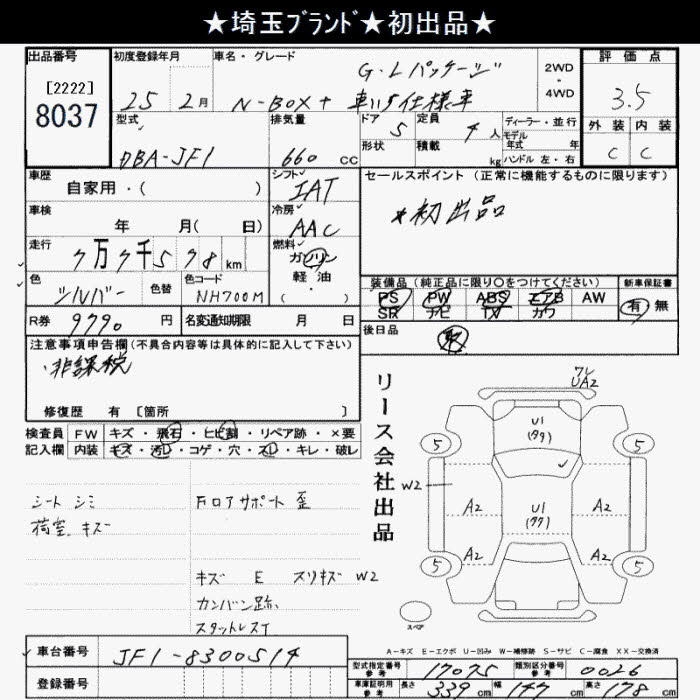 ★埼玉ブランド★初出品★
出品番号
[2222]
8037
初度登録年月
25 2月
車名・グレード
G・Lパッケージ
N-BOX+ 車いす仕様車
2WD
・
4WD
評価点
3.5
外装 内装
C C
型式
DBA-JF1
排気量
660 cc
ドア 5
形状
定員 4 人
積載 kg
ディーラー・並行
モデル
年式 年
ハンドル 左・右
車歴
自家用・( )
シフト
IAT
セールスポイント(正常に機能するものに限ります)
*初出品
車検
年 月(日)
冷房
AAC
走行
7万7千578km
燃料
ガソリン
軽油
・( )
色
シルバー
色替
色コード
NH700M
装備品(純正品に限り○をつけてください)
PS PW ABS エアB AW
SR ナビ TV カワ
新車保証書
有 無
R券 9790円
名変通知期限 月 日
後日品
取
注意事項申告欄(不具合内容等は具体的に記入して下さい)
・非課税
修復歴 有 [箇所 ]
検査員
記入欄
FW キズ・飛石・ヒビ割・リペア跡・×要
内装 キズ・汚れ・コゲ・穴・スレ・キレ・破レ
シート シミ
荷室 キズ
Fロアサポート 歪
キズ E スリキズ W2
カンバン跡
スタットレスT
リース会社出品
ワレ
UA2
U1
(99)
5
5
W2
A2
A2
U1
(77)
A2
A2
5
5
スペア
A-キズ E-エクボ U-凹み W-補修跡 S-サビ C-腐食 XX-交換済
車台番号
JF1-8300514
登録番号
型式指定番号
参考
17075
類別区分番号
参考
0026
車庫証明用
参考
長さ 339cm 幅 147cm 高さ 178cm